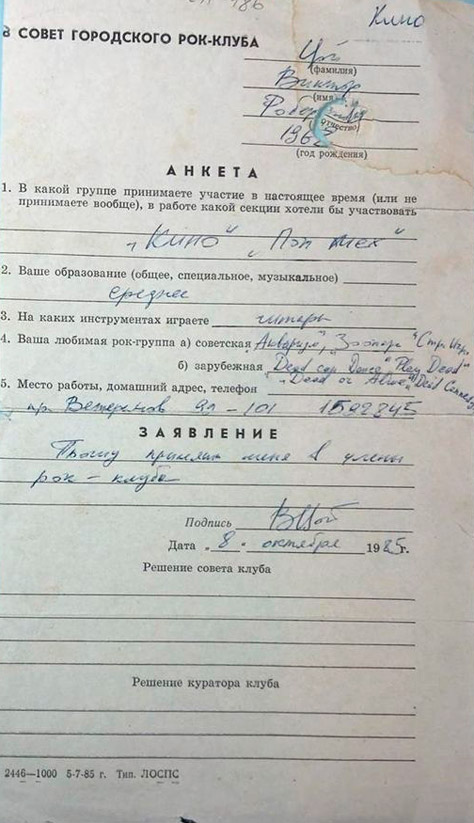 Кино
В СОВЕТ ГОРОДСКОГО РОК-КЛУБА
Цой
(фамилия)
Виктор
(имя)
Робер
(отчество)
1962
(год рождения)
АНКЕТА
1. В какой группе принимаете участие в настоящее время (или не
принимаете вообще), в работе какой секции хотели бы участвовать
„Кино" „Поп мех"
2. Ваше образование (общее, специальное, музыкальное)
среднее
3. На каких инструментах играете гитара
4. Ваша любимая рок-группа а) советская „Аквариум", „Зоопарк" „Стр. Игры"
б) зарубежная „Dead can Dance" „Play Dead"
„Dead or Alive" „Dead Kennedys"
5. Место работы, домашний адрес, телефон
пр. Ветеранов 99-101 1592845
ЗАЯВЛЕНИЕ
Прошу принять меня в члены
рок-клуба
Подпись ВЦой
Дата „8" октября 1985г.
Решение совета клуба
Решение куратора клуба
2446—1000 5-7-85 г. Тип. ЛОСПС